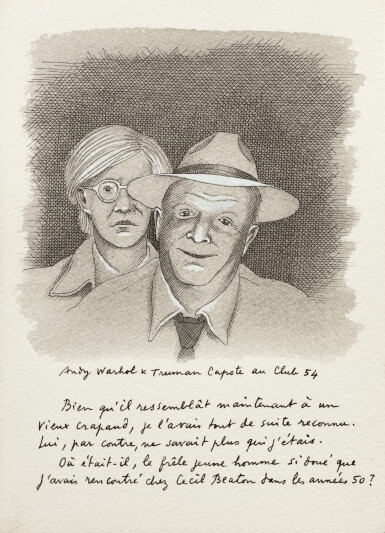 Andy Warhol x Truman Capote au Club 54
Bien qu'il ressemblât maintenant à un
vieux crapaud, je l'avais tout de suite reconnu.
Lui, par contre, ne savait plus qui j'étais.
Où était-il, le frêle jeune homme si doué que
j'avais rencontré chez Cecil Beaton dans les années 50?